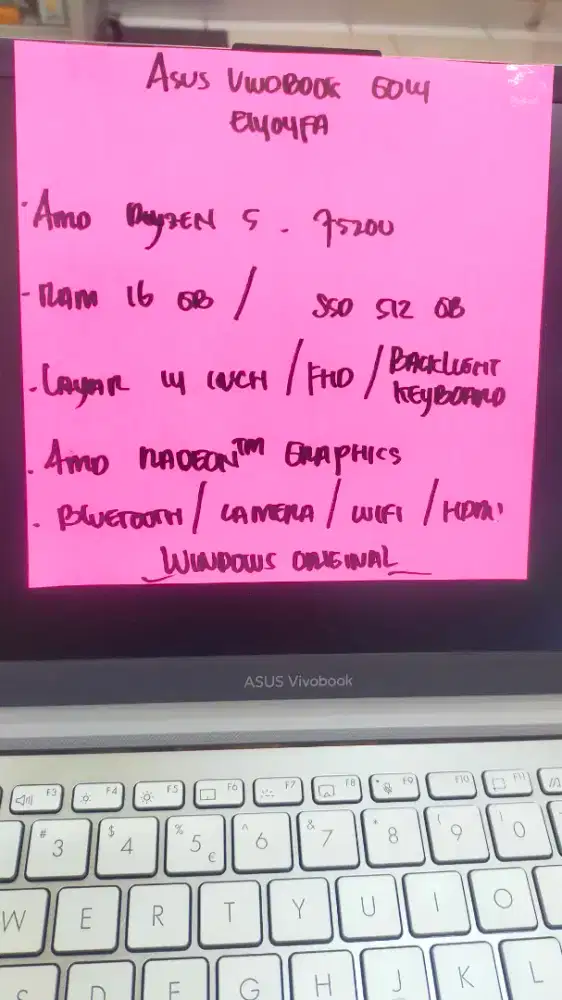 ASUS VIVOBOOK GO 14
E1404FA
· AMD RYZEN 5 - 7520U
- RAM 16 GB / SSD 512 GB
· LAYAR 14 INCH / FHD / BACKLIGHT KEYBOARD
· AMD RADEON™ GRAPHICS
· BLUETOOTH / CAMERA / WIFI / HDMI
WINDOWS ORIGINAL
ASUS Vivobook
F3 F4 F5 F6 F7 F8 F9 F10 F11
# 3 $ 4 % 5 € ^ 6 & 7 * 8 ( 9 ) 0
W E R T Y U I O
S D F G H J K L